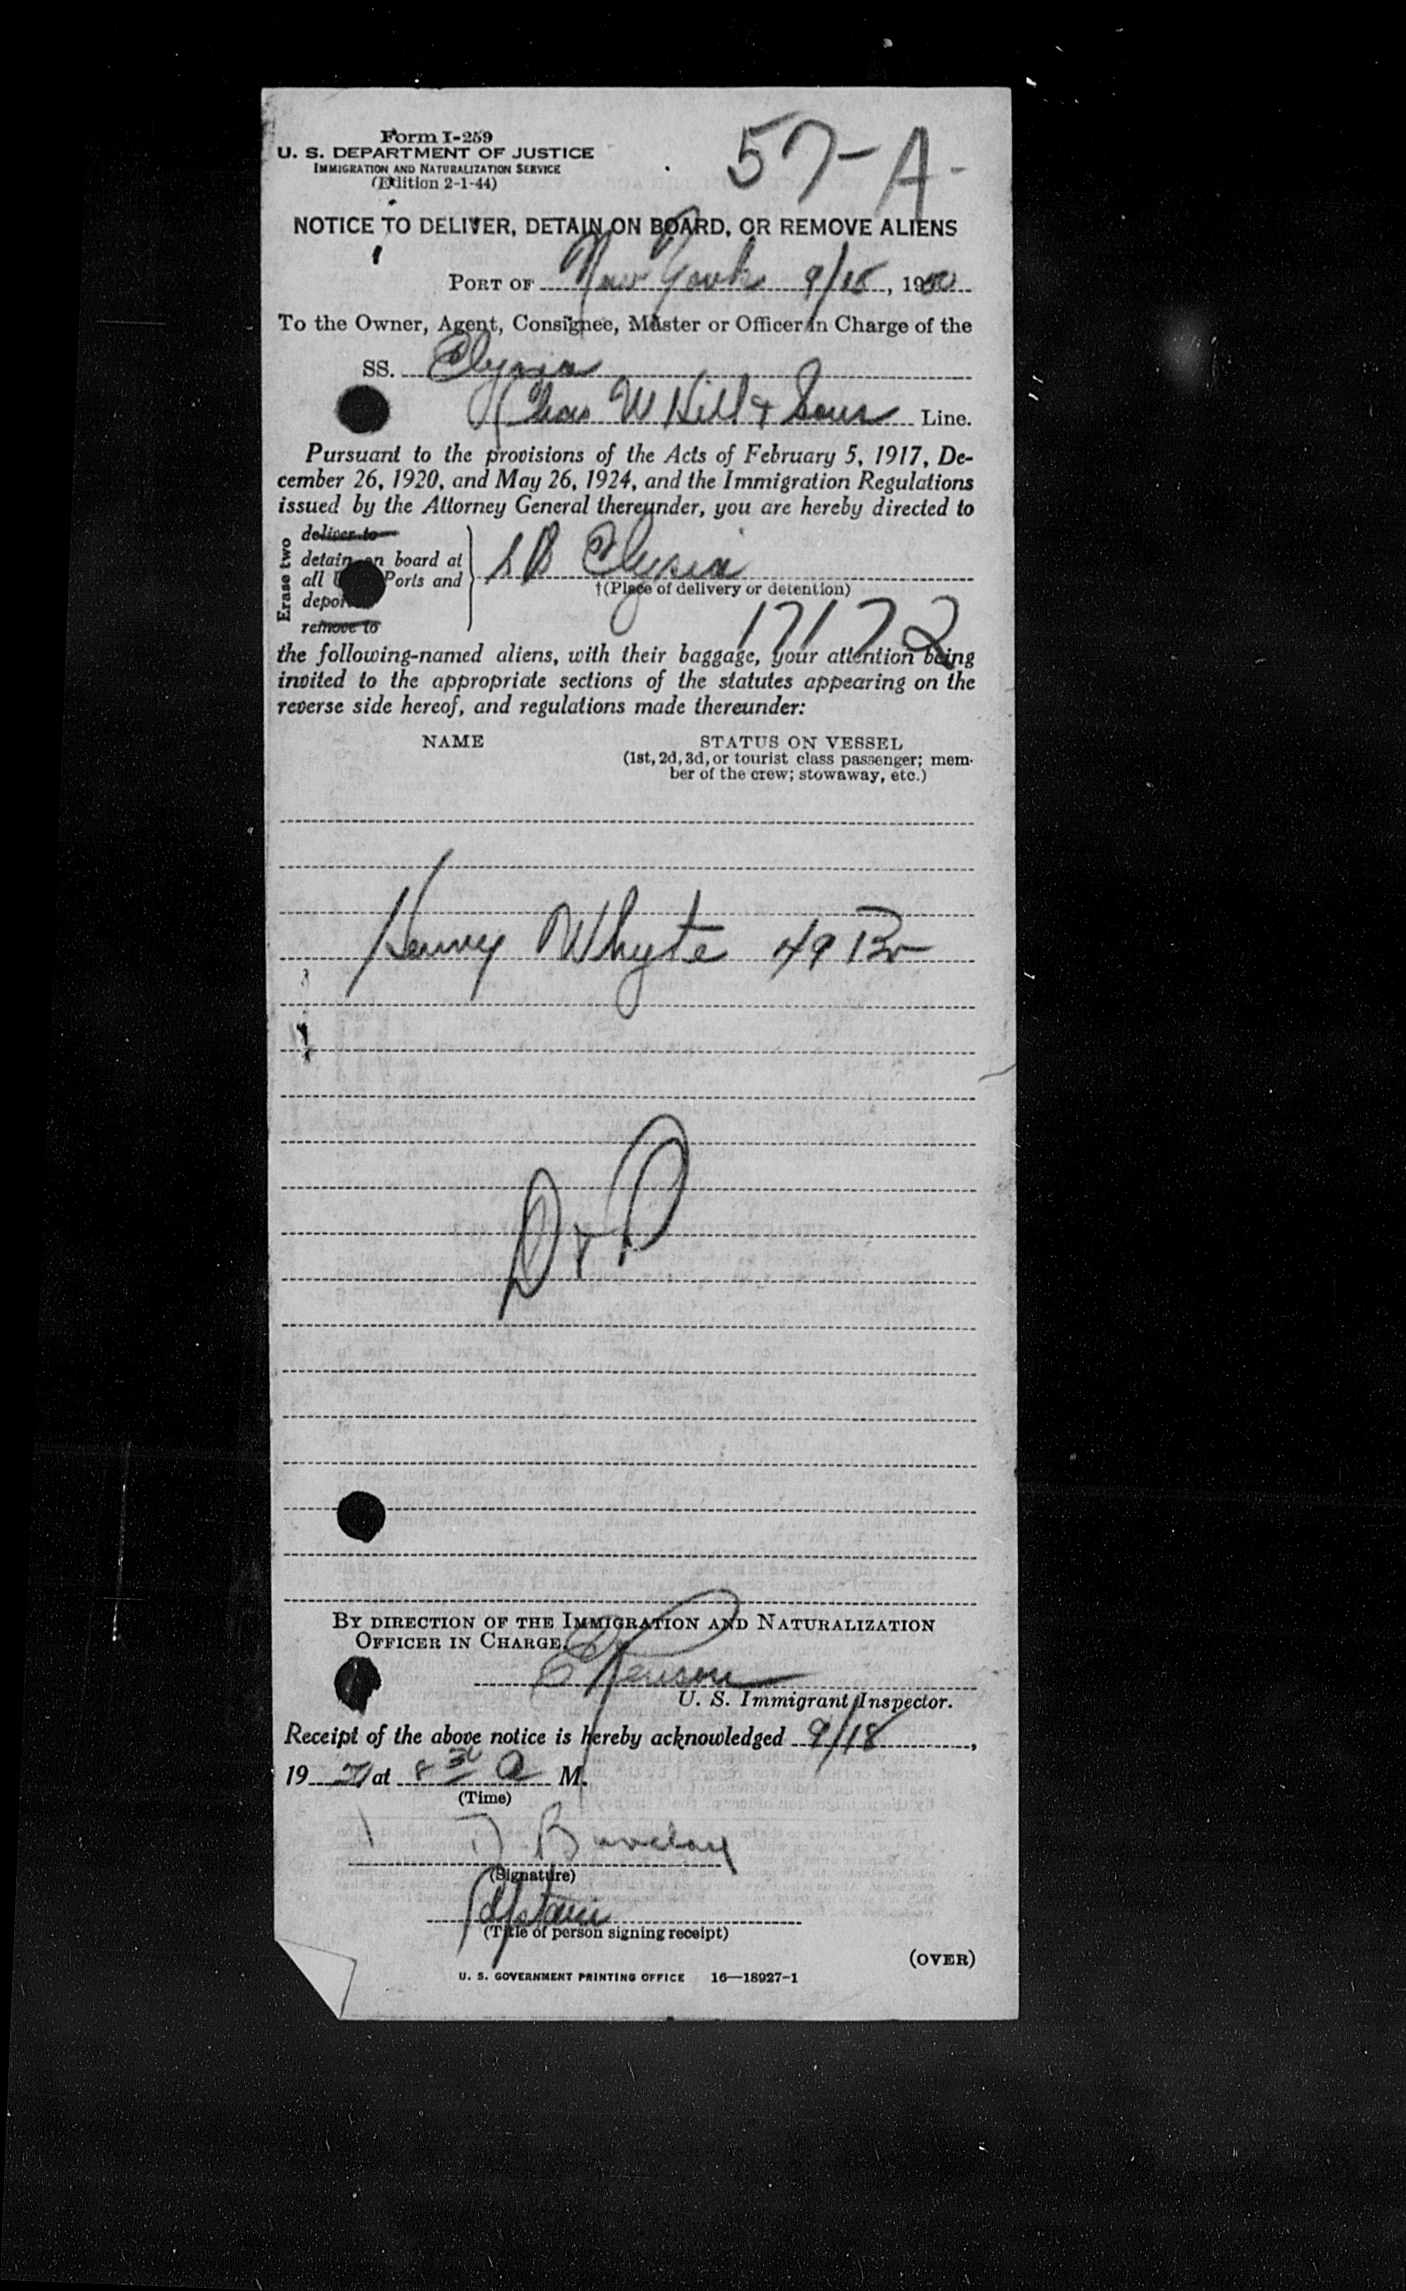 57-A-
Form I-259
U. S. DEPARTMENT OF JUSTICE
IMMIGRATION AND NATURALIZATION SERVICE
(Edition 2-1-44)
NOTICE TO DELIVER, DETAIN ON BOARD, OR REMOVE ALIENS
PORT OF New York 9/18, 1950
To the Owner, Agent, Consignee, Master or Officer in Charge of the
SS. Elysia
Chas W Hill & Sons Line.
Pursuant to the provisions of the Acts of February 5, 1917, De-
cember 26, 1920, and May 26, 1924, and the Immigration Regulations
issued by the Attorney General thereunder, you are hereby directed to
Erase two
deliver to
detain on board at
all Ports and
deport
remove to
SS Elysia
†(Place of delivery or detention)
17172
the following-named aliens, with their baggage, your attention being
invited to the appropriate sections of the statutes appearing on the
reverse side hereof, and regulations made thereunder:
NAME STATUS ON VESSEL
(1st, 2d, 3d, or tourist class passenger; mem-
ber of the crew; stowaway, etc.)
Henry Whyte 49 Br
D + D
BY DIRECTION OF THE IMMIGRATION AND NATURALIZATION
OFFICER IN CHARGE.
U. S. Immigrant Inspector.
Receipt of the above notice is hereby acknowledged 9/18,
19 50 at 8 30 A M.
(Time)
D. Barclay
(Signature)
Captain
(Title of person signing receipt)
(OVER)
U. S. GOVERNMENT PRINTING OFFICE 16—18927-1